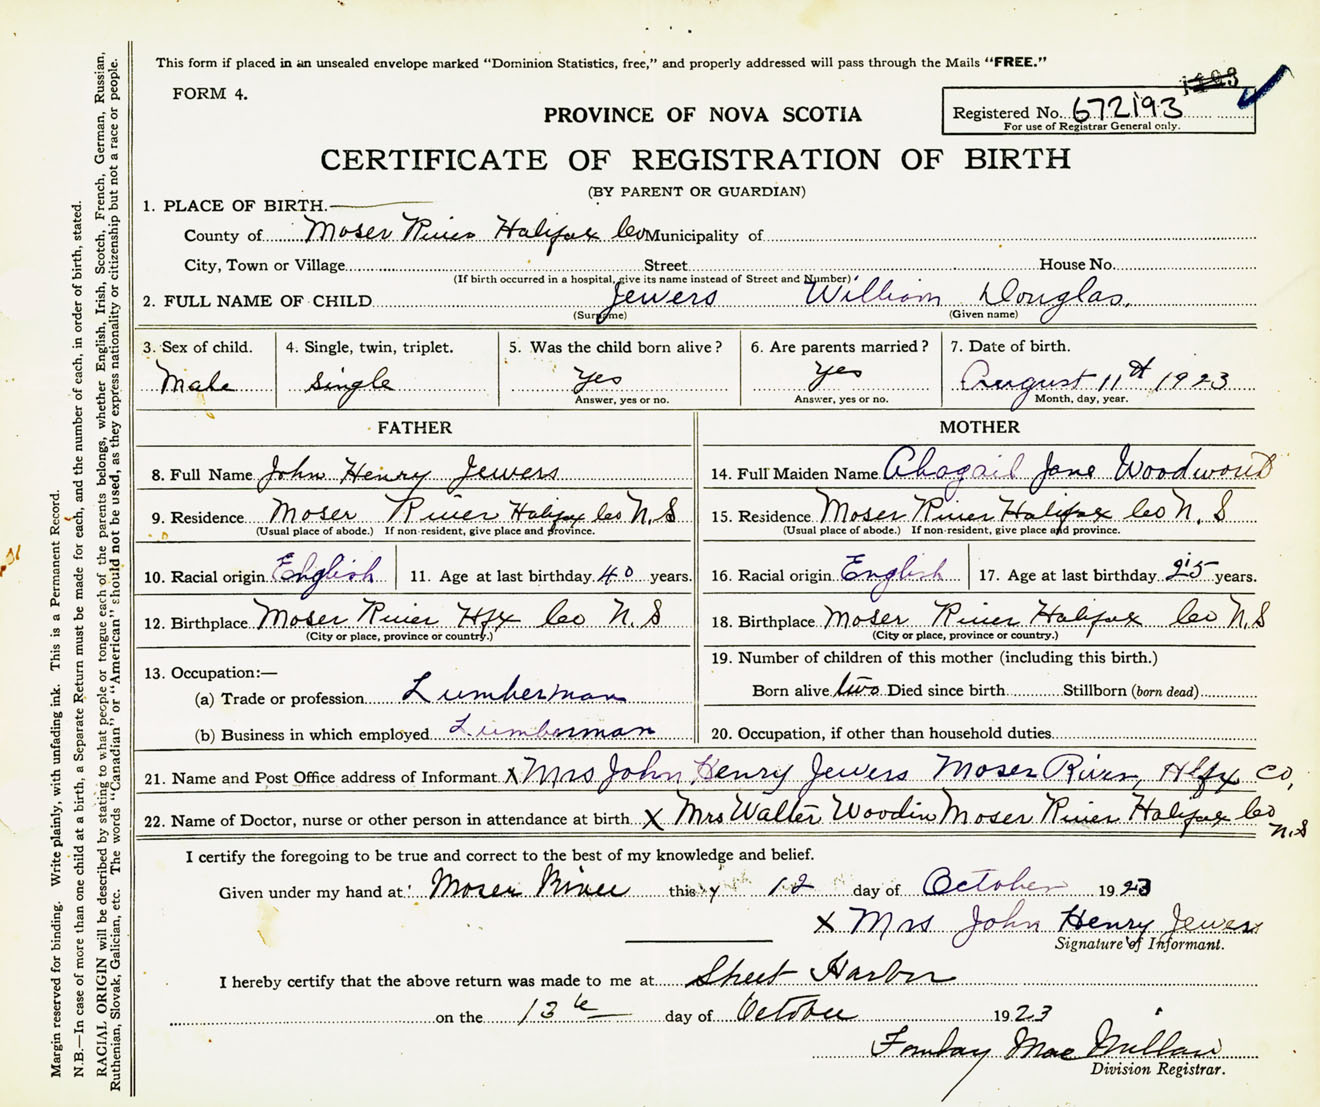 This form if placed in an unsealed envelope marked "Dominion Statistics, free," and properly addressed will pass through the Mails "FREE."
FORM 4.
PROVINCE OF NOVA SCOTIA
Registered No. 672193
For use of Registrar General only.
CERTIFICATE OF REGISTRATION OF BIRTH
(BY PARENT OR GUARDIAN)
1. PLACE OF BIRTH.
County of Moser River Halifax Co Municipality of
City, Town or Village Street House No.
(If birth occurred in a hospital, give its name instead of Street and Number)
2. FULL NAME OF CHILD Jewers William Douglas.
(Surname) (Given name)
3. Sex of child. 4. Single, twin, triplet. 5. Was the child born alive? 6. Are parents married? 7. Date of birth.
Male Single Yes Yes August 11th 1923
Answer, yes or no. Answer, yes or no. Month, day, year.
FATHER MOTHER
8. Full Name John Henry Jewers 14. Full Maiden Name Abagail Jane Woodword
9. Residence Moser River Halifax Co N.S 15. Residence Moser River Halifax Co N. S
(Usual place of abode.) If non-resident, give place and province. (Usual place of abode.) If non-resident, give place and province.
10. Racial origin English 11. Age at last birthday 40 years. 16. Racial origin English 17. Age at last birthday 25 years.
12. Birthplace Moser River Hfx Co N.S 18. Birthplace Moser River Halifax Co N.S
(City or place, province or country.) (City or place, province or country.)
13. Occupation:— 19. Number of children of this mother (including this birth.)
(a) Trade or profession Lumberman Born alive two Died since birth Stillborn (born dead)
(b) Business in which employed Lumberman 20. Occupation, if other than household duties
21. Name and Post Office address of Informant x Mrs John Henry Jewers Moser River, Hlfx Co,
22. Name of Doctor, nurse or other person in attendance at birth x Mrs Walter Woodin Moser River Halifax Co
N.S
I certify the foregoing to be true and correct to the best of my knowledge and belief.
Given under my hand at Moser River this 12 day of October 1923
x Mrs John Henry Jewers
Signature of Informant.
I hereby certify that the above return was made to me at Sheet Harbor
on the 13th day of October 1923
Mac Millan
Division Registrar.
Margin reserved for binding. Write plainly, with unfading ink. This is a Permanent Record.
N.B.—In case of more than one child at a birth, a Separate Return must be made for each, and the number of each, in order of birth, stated.
RACIAL ORIGIN will be described by stating to what people or tongue each of the parents belongs, whether English, Irish, Scotch, French, German, Russian,
Ruthenian, Slovak, Galician, etc. The words "Canadian" or "American" should not be used, as they express nationality or citizenship but not a race or people.